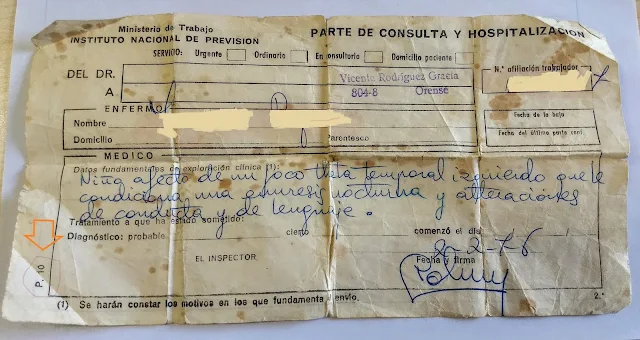 Ministerio de Trabajo
INSTITUTO NACIONAL DE PREVISION
PARTE DE CONSULTA Y HOSPITALIZACION
SERVICIO: Urgente Ordinario En consultorio Domicilio paciente
DEL DR.
Vicente Rodríguez Gracia
804-8 Orense
N.° afiliación trabajador
A
ENFERMO
Nombre
Domicilio Parentesco
Fecha de la baja
Fecha del último parte conf.
MEDICO
Datos fundamentales de exploración clínica (1):
Niño afecto de un foco theta temporal izquierdo que le
condiciona una enuresis nocturna y alteraciones
de conducta y de lenguaje.
Tratamiento a que ha estado sometido:
Diagnóstico: probable cierto comenzó el día
2-2-76
EL INSPECTOR
Fecha y firma
P. 10
(1) Se harán constar los motivos en los que fundamenta envío.
2.ª